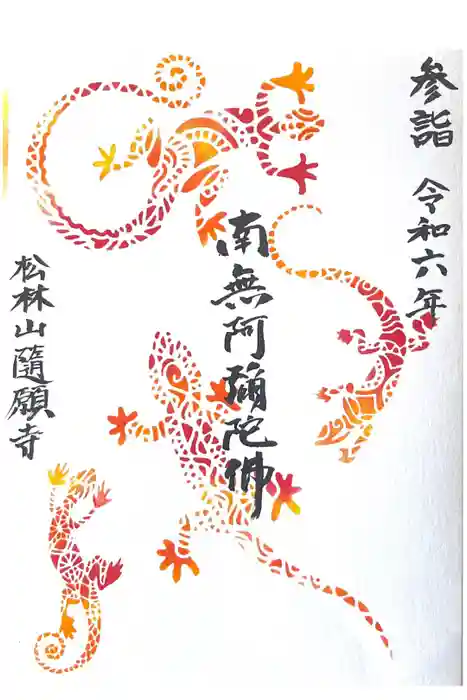 参詣 令和六年
南無阿彌陀佛
松林山隨願寺